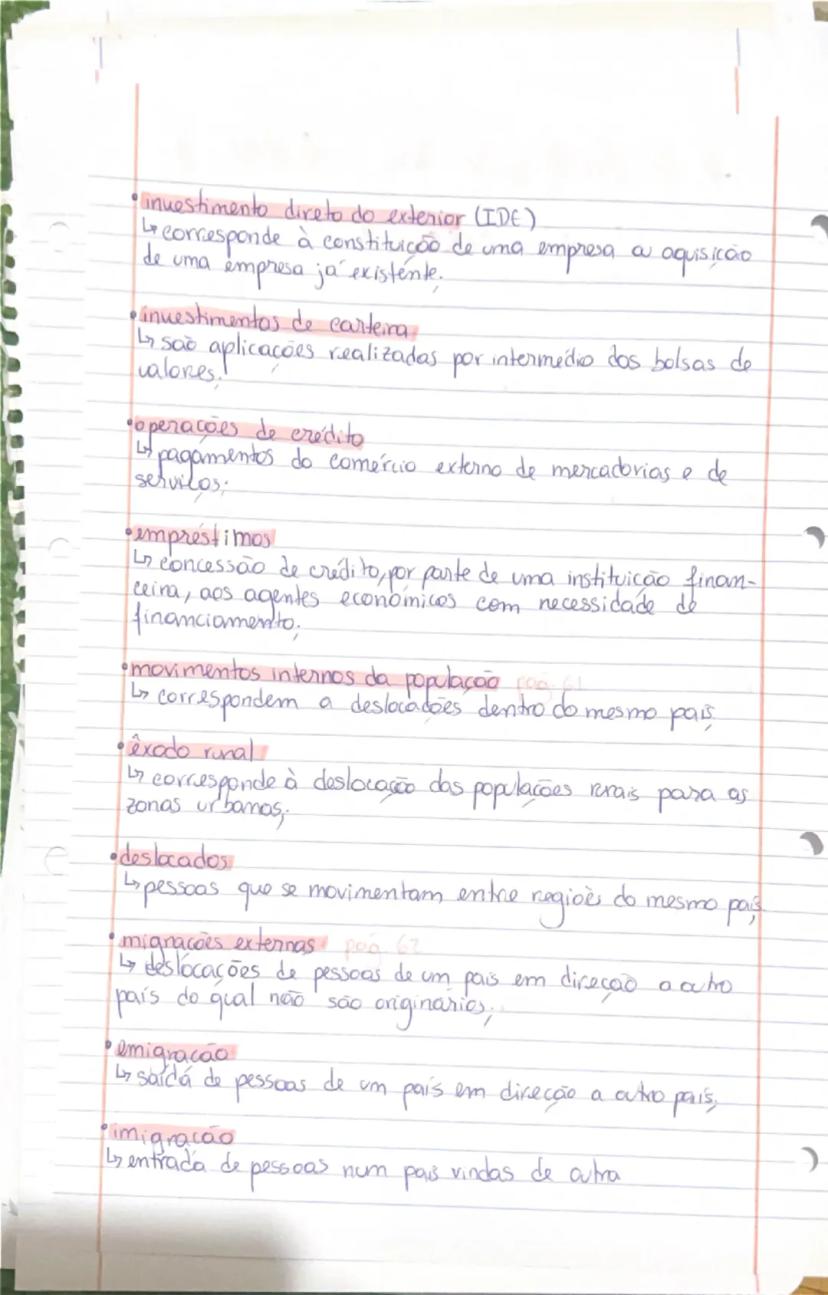 • investimento direto do exterior (IDE)
↳ corresponde à constituição de uma empresa ou aquisição
de uma empresa já existente;
• investimentos de carteira
↳ são aplicações realizadas por intermédio dos bolsas de
valores;
• operações de crédito
↳ pagamentos do comércio externo de mercadorias e de
serviços;
• empréstimos
↳ concessão de crédito, por parte de uma instituição finan-
ceira, aos agentes económicos com necessidade de
financiamento;
• movimentos internos da população pág 61
↳ correspondem a deslocações dentro do mesmo país;
• êxodo rural
↳ corresponde à deslocação das populações rurais para as
zonas urbanas;
• deslocados
↳ pessoas que se movimentam entre regiões do mesmo país;
• migrações externas pág 62
↳ deslocações de pessoas de um país em direção a outro
país do qual não são originários;
• emigração
↳ saída de pessoas de um país em direcção a outro país;
• imigração
↳ entrada de pessoas num país vindas de outra